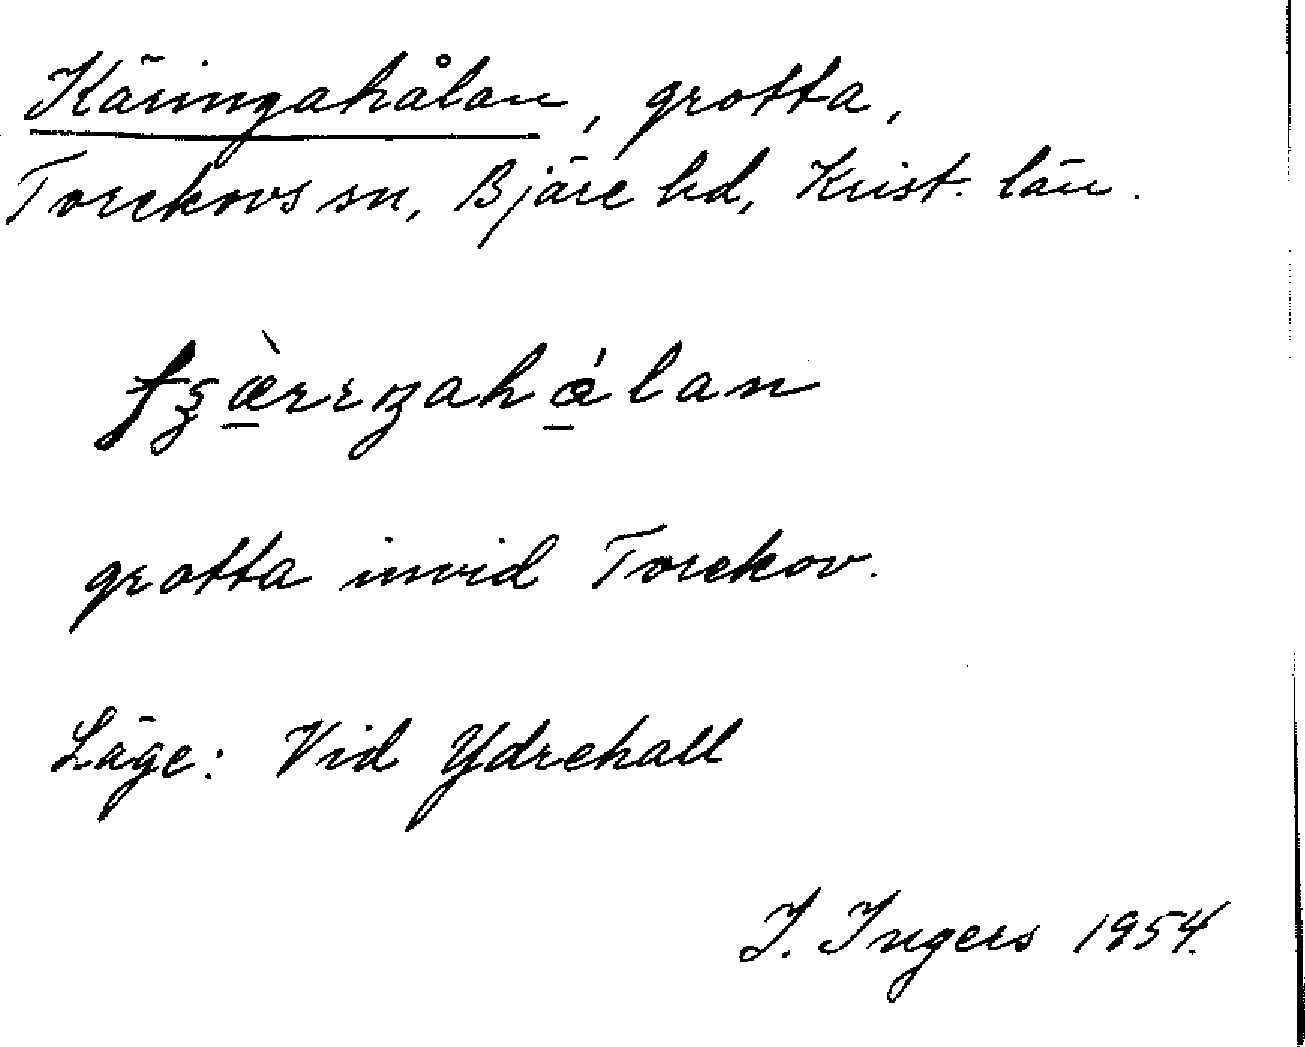 Käringahålan, grotta,
Torekovs sn, Bjäre hd, Krist. län.
grotta invid Torekov.
Läge: Vid Ydrehall
I. Ingers 1954.